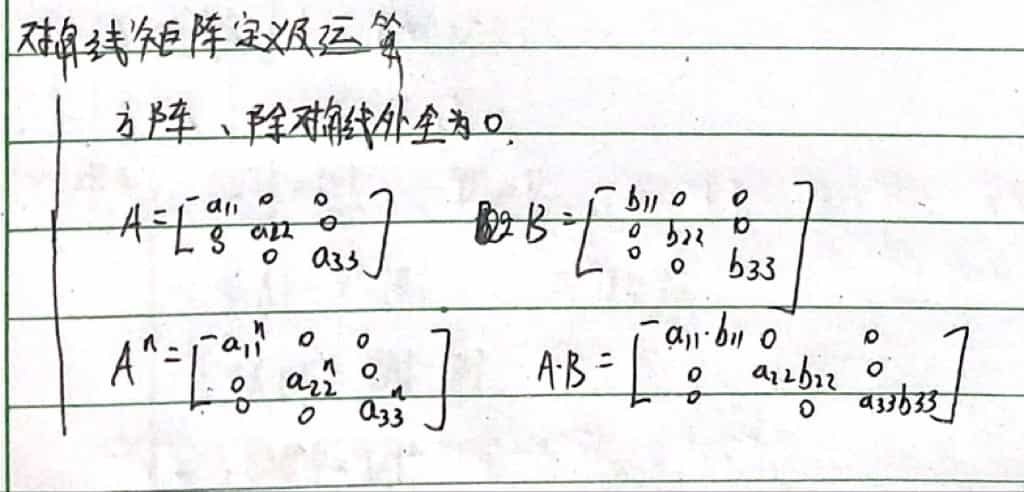 对角线矩阵定义及运算
方阵、除对角线外全为0.
A = [a11 0 0
0 a22 0
0 0 a33]
B = [b11 0 0
0 b22 0
0 0 b33]
Aⁿ = [a11ⁿ 0 0
0 a22ⁿ 0
0 0 a33ⁿ]
A·B = [a11·b11 0 0
0 a22b22 0
0 0 a33b33]